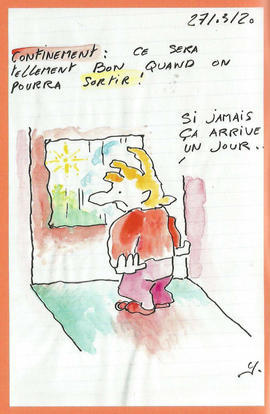 27/3/20
CONFINEMENT : CE SERA
TELLEMENT BON QUAND ON
POURRA SORTIR !
SI JAMAIS
ÇA ARRIVE
UN JOUR..
y.